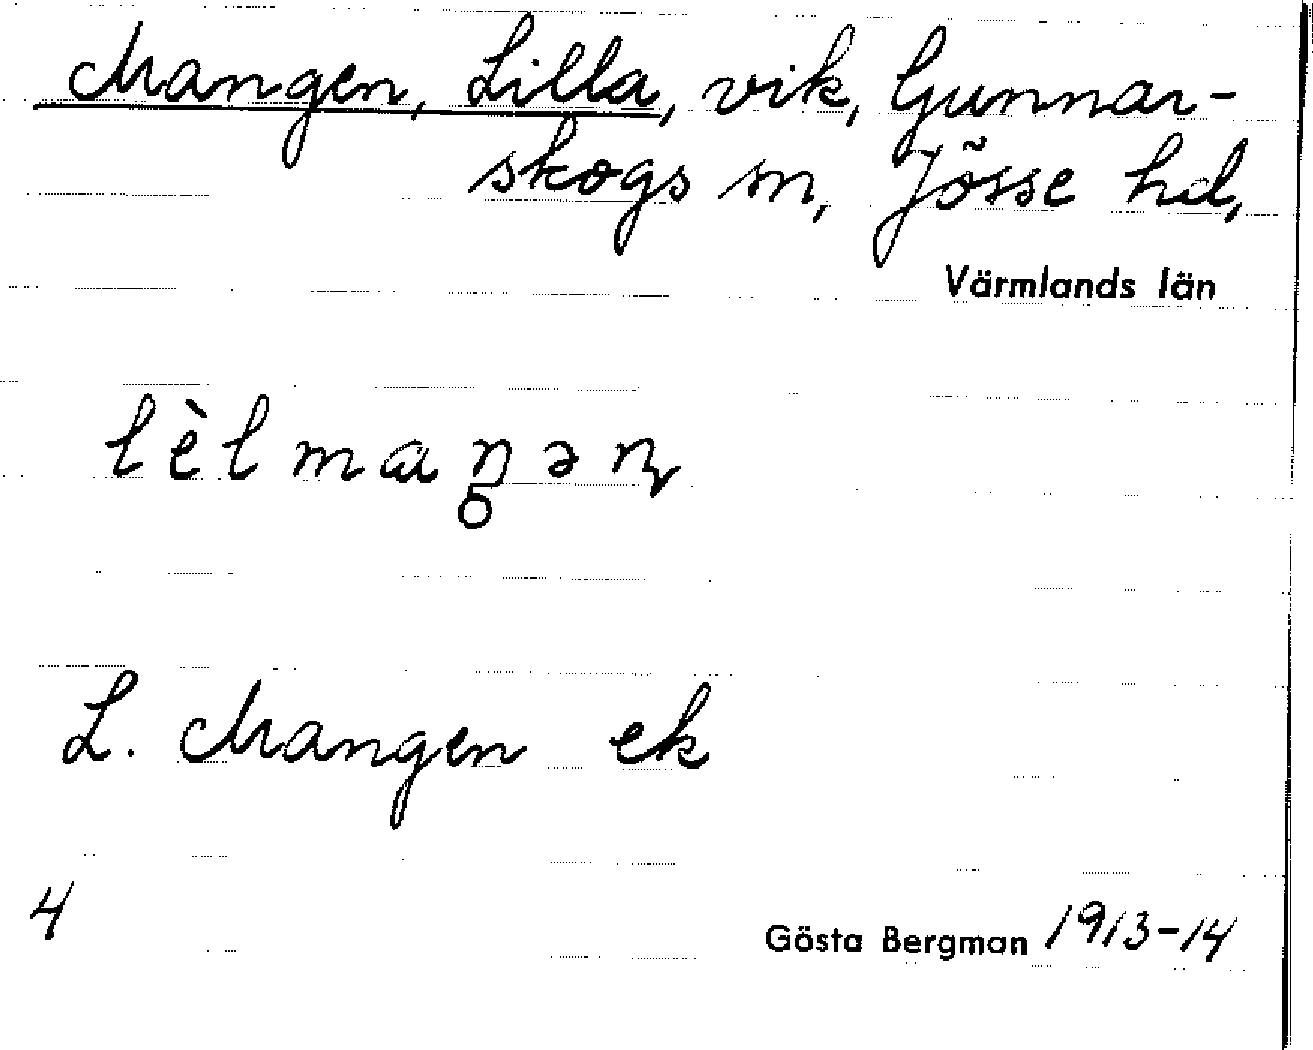 Mangen, Lilla, vik, Gunnar-
skogs sn, Jösse hd,
Värmlands län
lèlmaŋ̥ən
L. Mangen ek
4
Gösta Bergman 1913-14